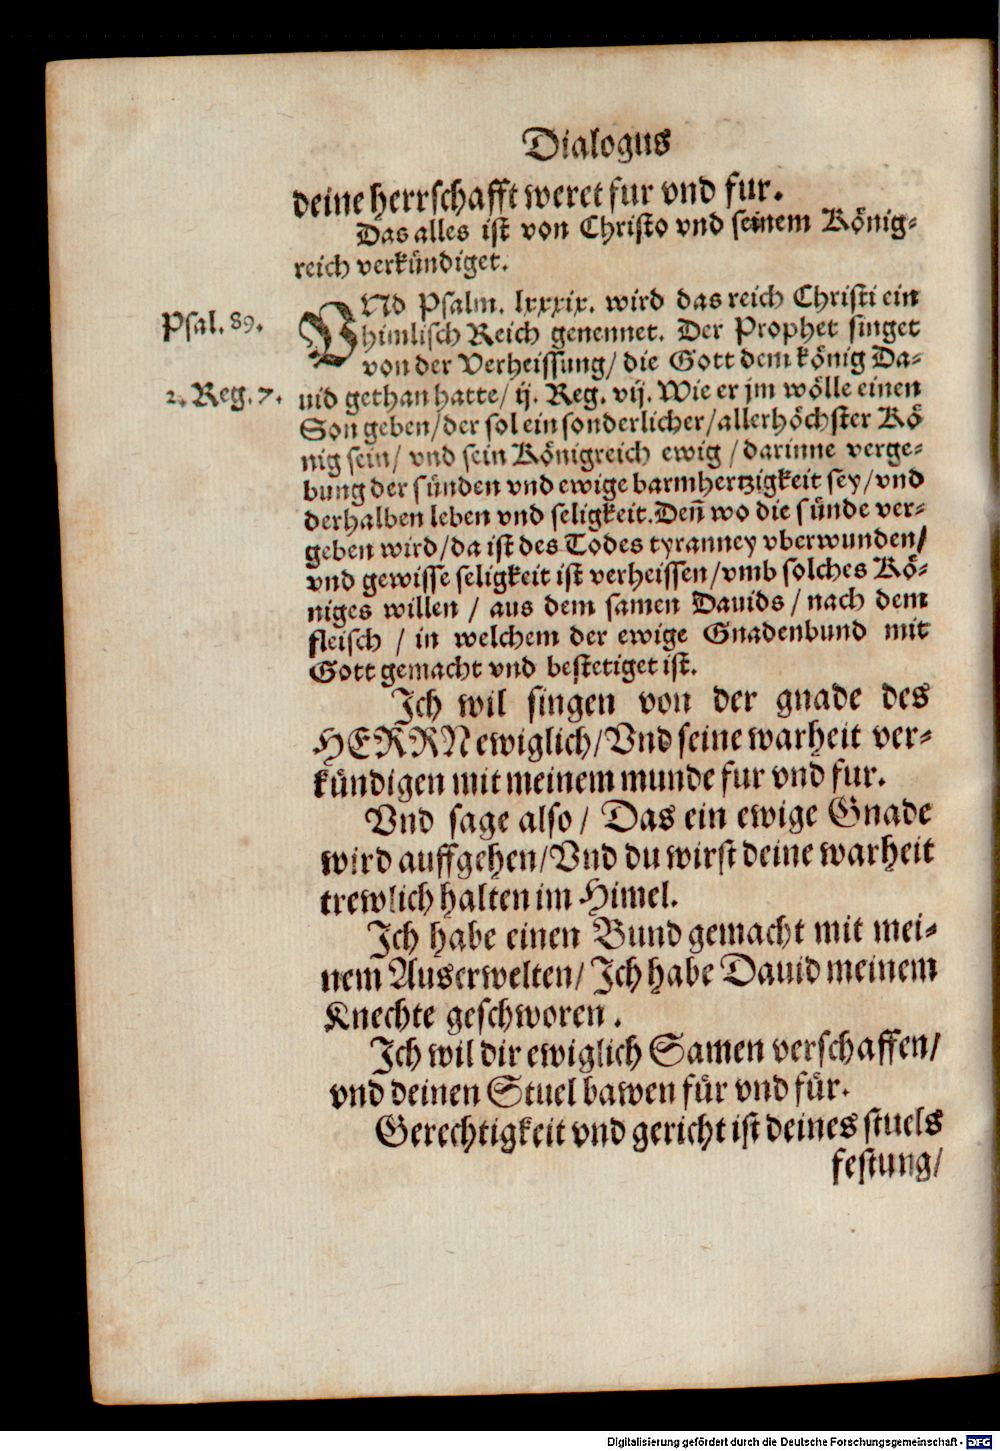 Dialogus
deine herrschafft weret fur vnd fur.
Das alles ist von Christo vnd seinem König⸗
reich verkündiget.
Psal. 89.
VNd Psalm. lxxxix. wird das reich Christi ein
himlisch Reich genennet. Der Prophet singet
von der Verheissung/ die Gott dem könig Da⸗
2. Reg. 7.
uid gethan hatte/ ij. Reg. vij. Wie er jm wölle einen
Son geben/ der sol ein sonderlicher/ allerhöchster Kö
nig sein/ vnd sein Königreich ewig / darinne verge⸗
bung der sünden vnd ewige barmhertzigkeit sey/ vnd
derhalben leben vnd seligkeit. Deñ wo die sünde ver⸗
geben wird/ da ist des Todes tyranney vberwunden/
vnd gewisse seligkeit ist verheissen/ vmb solches Kö⸗
niges willen / aus dem samen Dauids / nach dem
fleisch / in welchem der ewige Gnadenbund mit
Gott gemacht vnd bestetiget ist.
Ich wil singen von der gnade des
HERRN ewiglich/ Vnd seine warheit ver⸗
kündigen mit meinem munde fur vnd fur.
Vnd sage also / Das ein ewige Gnade
wird auffgehen/ Vnd du wirst deine warheit
trewlich halten im Himel.
Ich habe einen Bund gemacht mit mei⸗
nem Auserwelten/ Ich habe Dauid meinem
Knechte geschworen.
Ich wil dir ewiglich Samen verschaffen/
vnd deinen Stuel bawen für vnd für.
Gerechtigkeit vnd gericht ist deines stuels
festung/
Digitalisierung gefördert durch die Deutsche Forschungsgemeinschaft - DFG